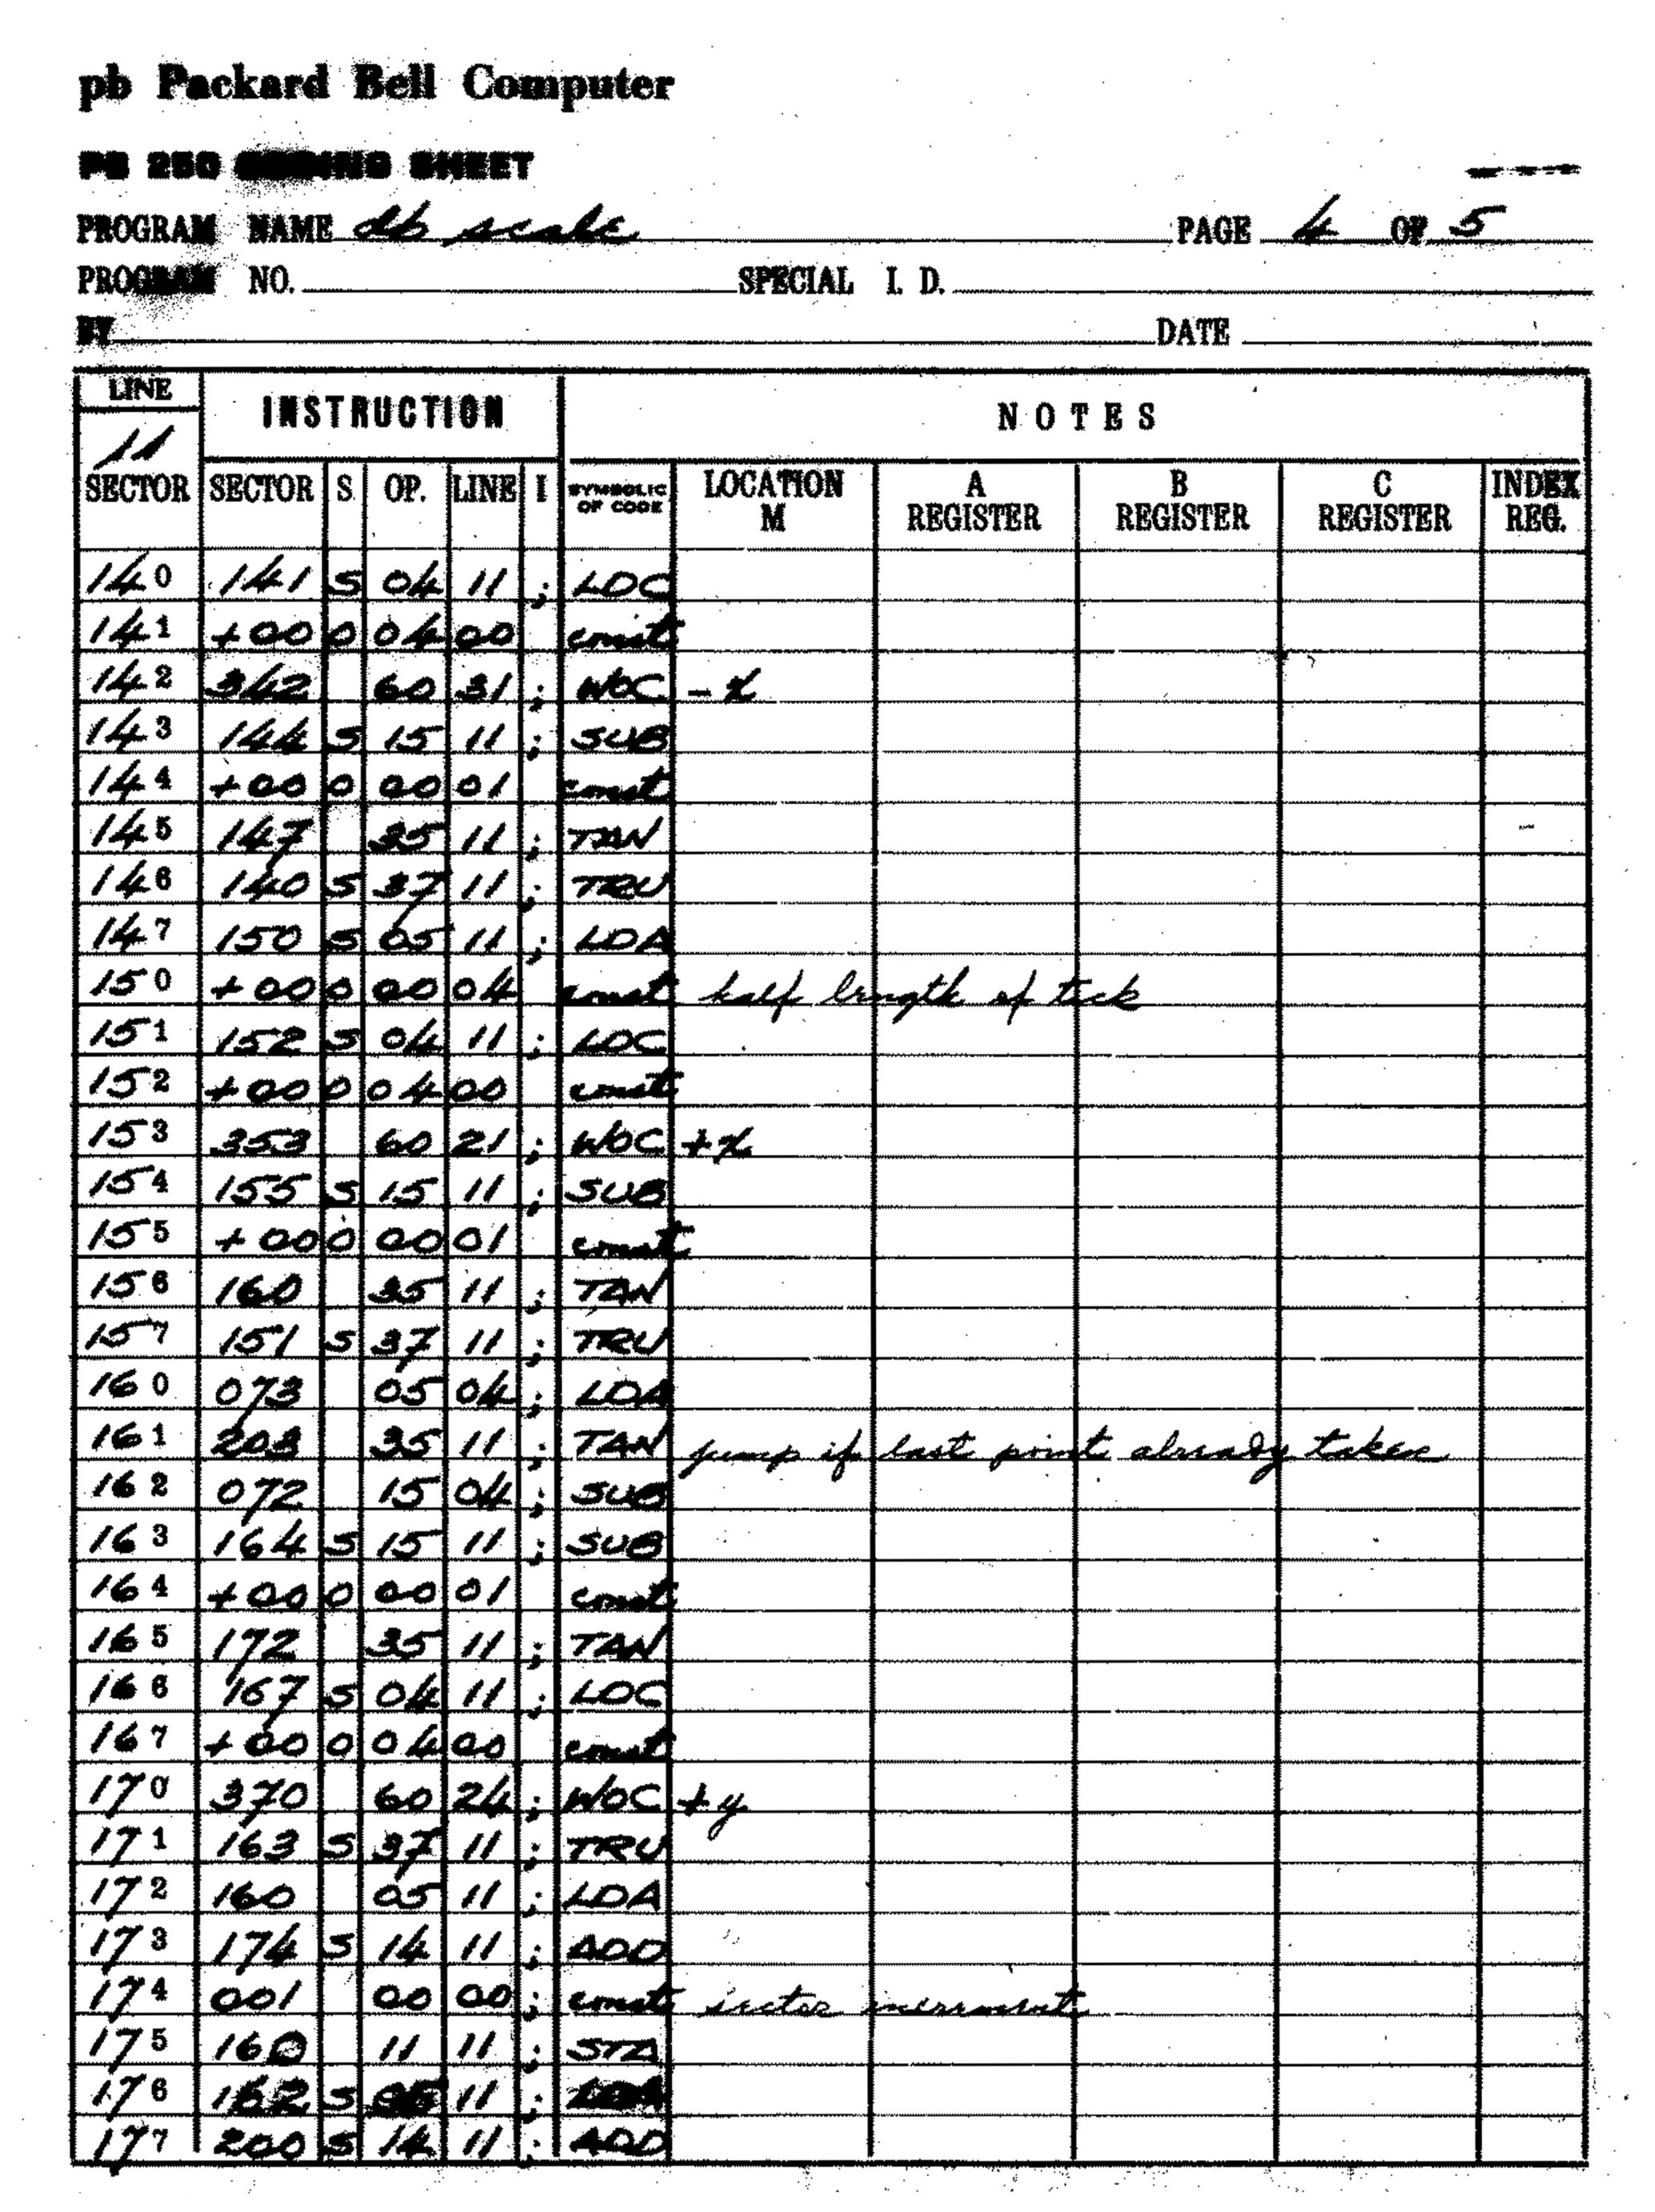 pb Packard Bell Computer
PB 250 CODING SHEET
PROGRAM NAME db scale PAGE 4 OF 5
PROGRAM NO. SPECIAL I. D.
BY DATE
LINE INSTRUCTION NOTES
11
SECTOR SECTOR S OP. LINE I SYMBOLIC OP CODE LOCATION M A REGISTER B REGISTER C REGISTER INDEX REG.
140 141 S 04 11 ; LDC
141 +00 0 04 00 const
142 342 60 31 ; WOC -x
143 144 S 15 11 ; SUB
144 +00 0 00 01 const
145 147 35 11 ; TAN
146 140 S 37 11 ; TRU
147 150 S 05 11 ; LDA
150 +00 0 00 04 const half length of tick
151 152 S 04 11 ; LDC
152 +00 0 04 00 const
153 353 60 21 ; WOC +x
154 155 S 15 11 ; SUB
155 +00 0 00 01 const
156 160 35 11 ; TAN
157 151 S 37 11 ; TRU
160 073 05 04 ; LDA
161 203 35 11 ; TAN jump if last point already taken
162 072 15 04 ; SUB
163 164 S 15 11 ; SUB
164 +00 0 00 01 const
165 172 35 11 ; TAN
166 167 S 04 11 ; LDC
167 +00 0 04 00 const
170 370 60 24 ; WOC +y
171 163 S 37 11 ; TRU
172 160 05 11 ; LDA
173 174 S 14 11 ; ADD
174 001 00 00 ; const sector increment
175 160 11 11 ; STA
176 162 S 05 11 ; LDA
177 200 S 14 11 ; ADD